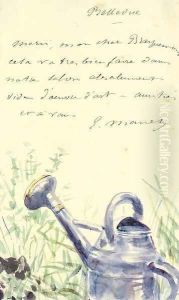 Bellevue
Merci, mon cher Bracquemond
cela va très bien faire dans
notre salon absolument
vide d'œuvre d'art — amitiés
et à vous
E. Manet